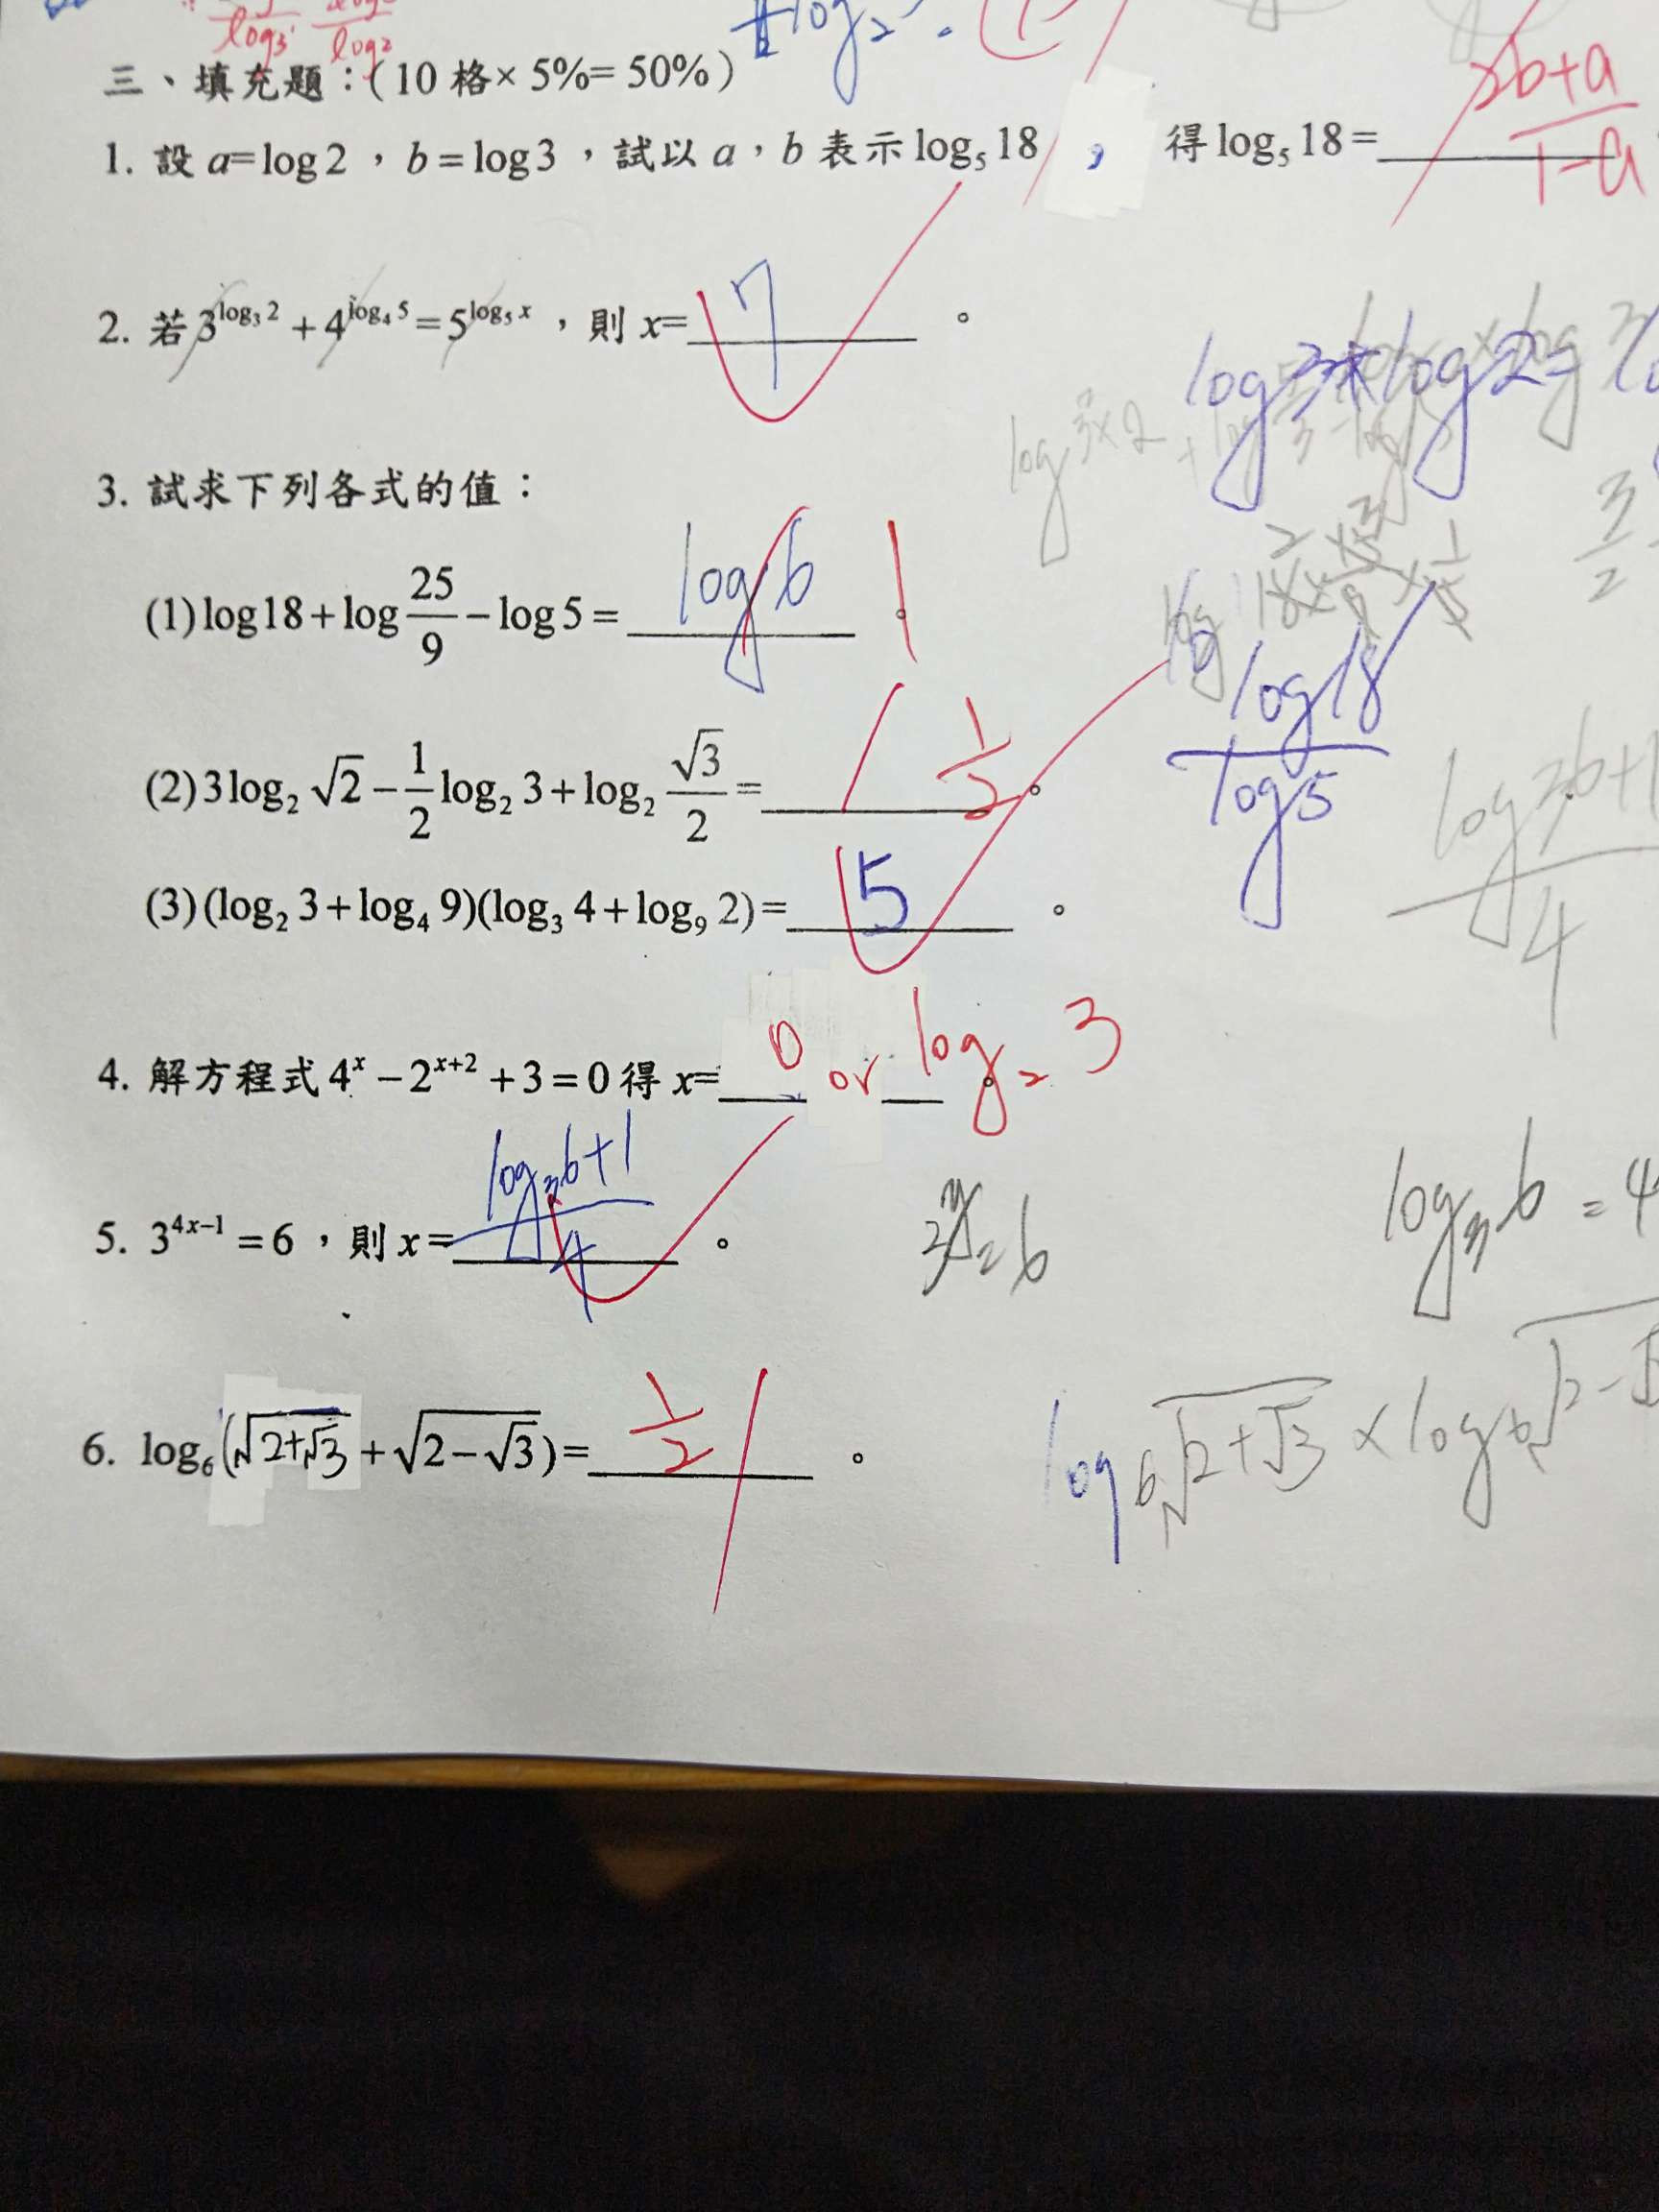 log3 log2
log₂
三、填充題：（10 格× 5%= 50%）
1. 設 a=log2，b=log3，試以 a，b 表示 log₅18， 得 log₅18= (2b+a)/(1-a)
2. 若 3^(log₃2) + 4^(log₄5) = 5^(log₅x)，則 x= 7 。
3. 試求下列各式的值：
(1) log18 + log 25/9 − log5 = log 6 1 。
(2) 3log₂√2 − 1/2 log₂3 + log₂ √3/2 = 1/2 。
(3) (log₂3 + log₄9)(log₃4 + log₉2) = 5 。
4. 解方程式 4^x − 2^(x+2) + 3 = 0 得 x= 0 or log₂3 。
5. 3^(4x−1) = 6，則 x= (log₃6+1)/4 。
6. log₆(√(2+√3) + √(2−√3)) = 1/2 。
log 3×2
3/2
log18/log5
4
log₃6 = 4
log₆√(2+√3) × log₆√(2-